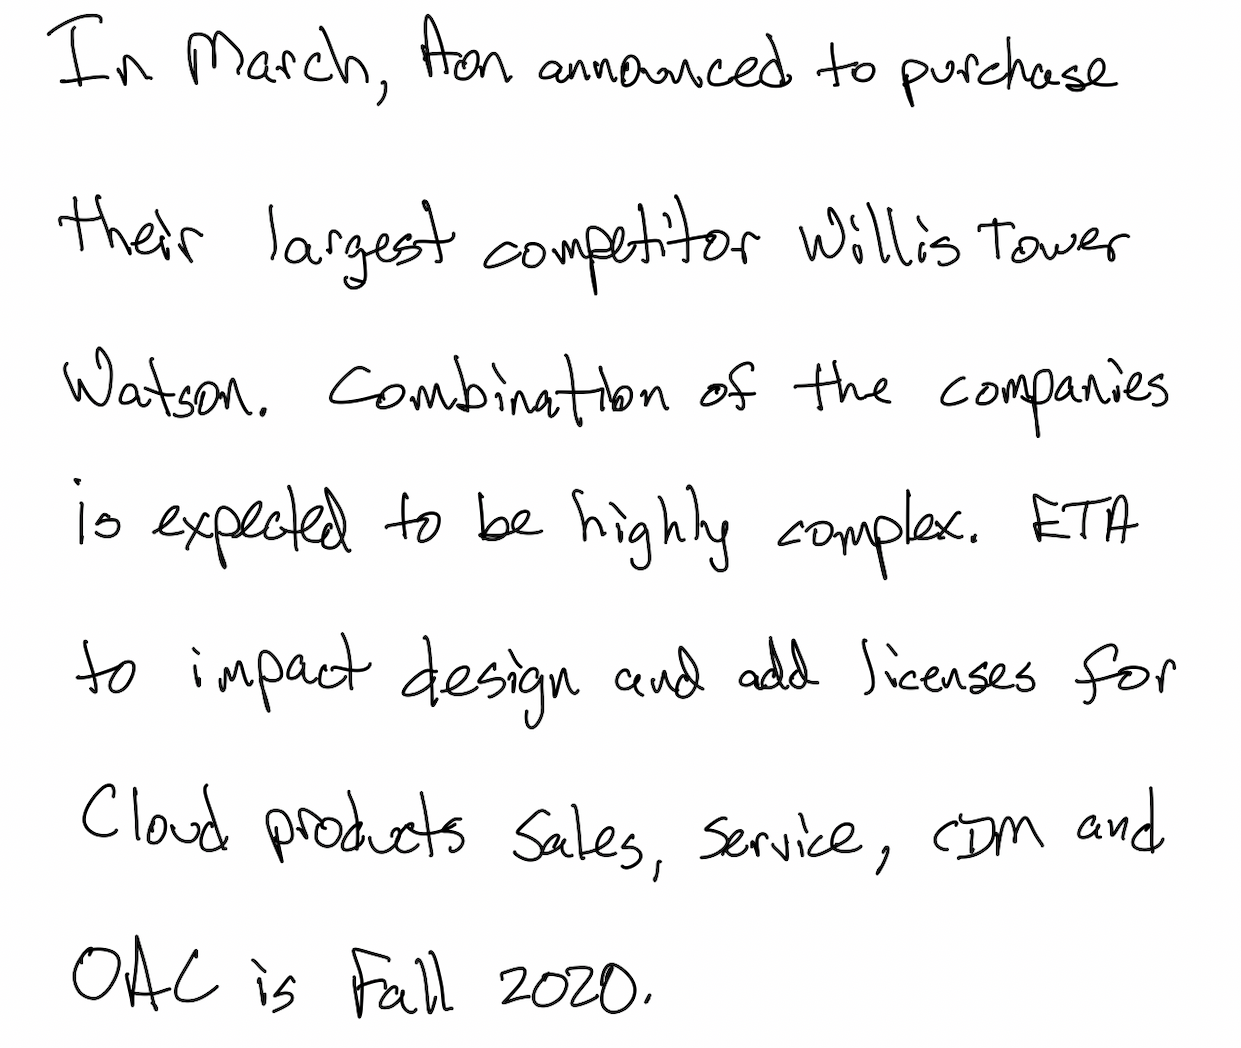 In March, Aon announced to purchase
their largest competitor Willis Tower
Watson. Combination of the companies
is expected to be highly complex. ETA
to impact design and add licenses for
Cloud products Sales, Service, CDM and
OAC is Fall 2020.